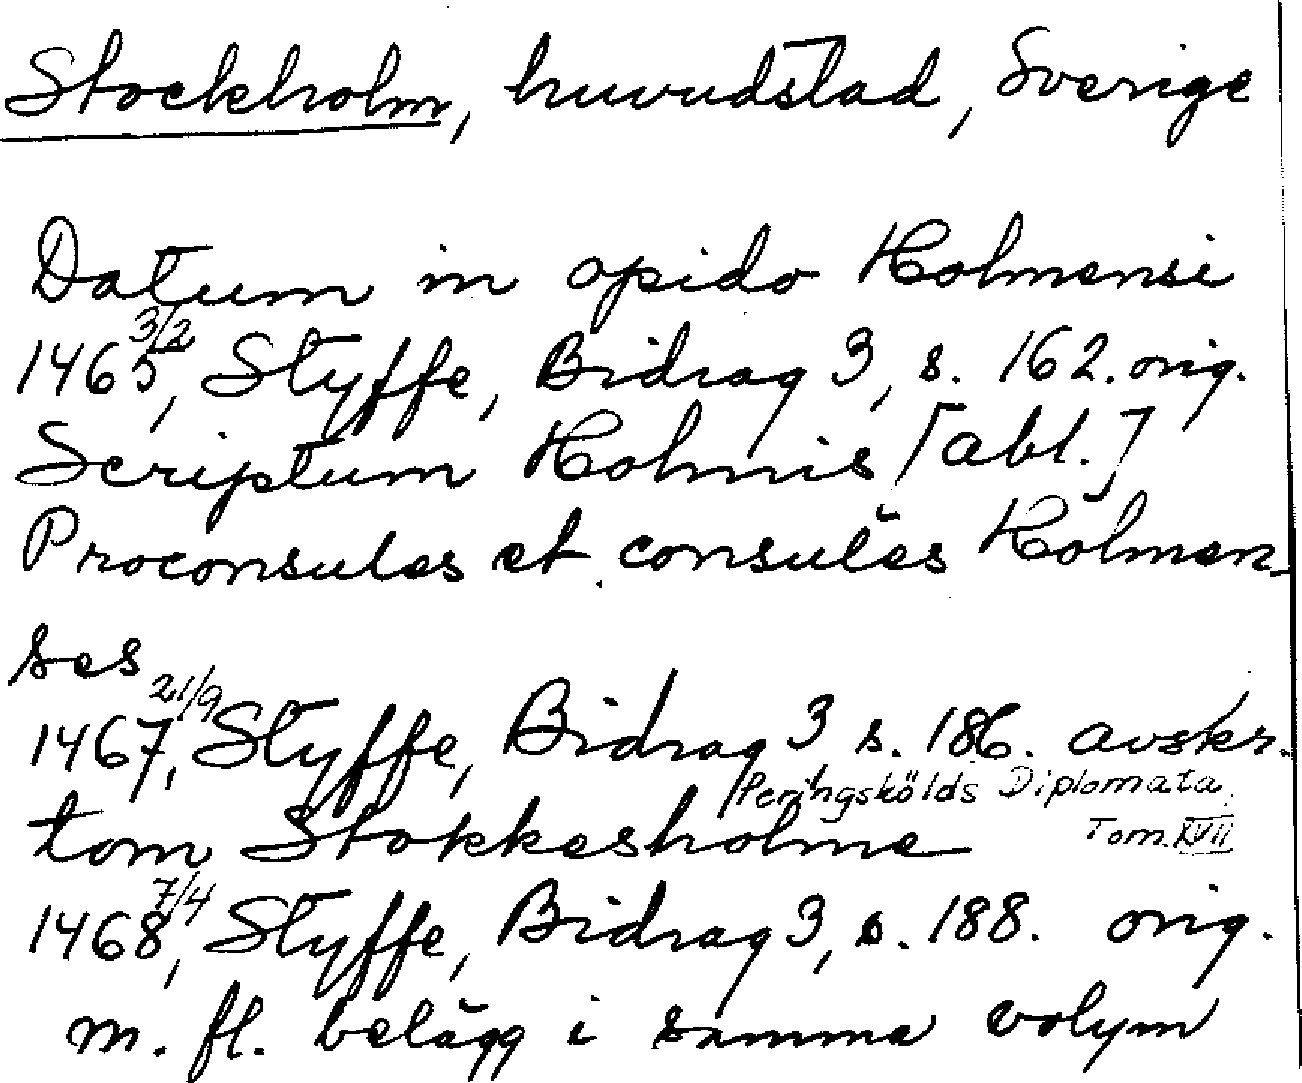 Stockholm, huvudstad, Sverige
Datum in opido Holmensi
1465 3/2, Styffe, Bidrag 3, s. 162. orig.
Scriptum Holmis [abl.]
Proconsules et consules Holmen-
ses
1467 21/9, Styffe, Bidrag 3 s. 186. avskr.
Peringskölds Diplomata
Tom. XVII
tom Stokkesholme
1468 7/4, Styffe, Bidrag 3, s. 188. orig.
m. fl. belägg i samma volym